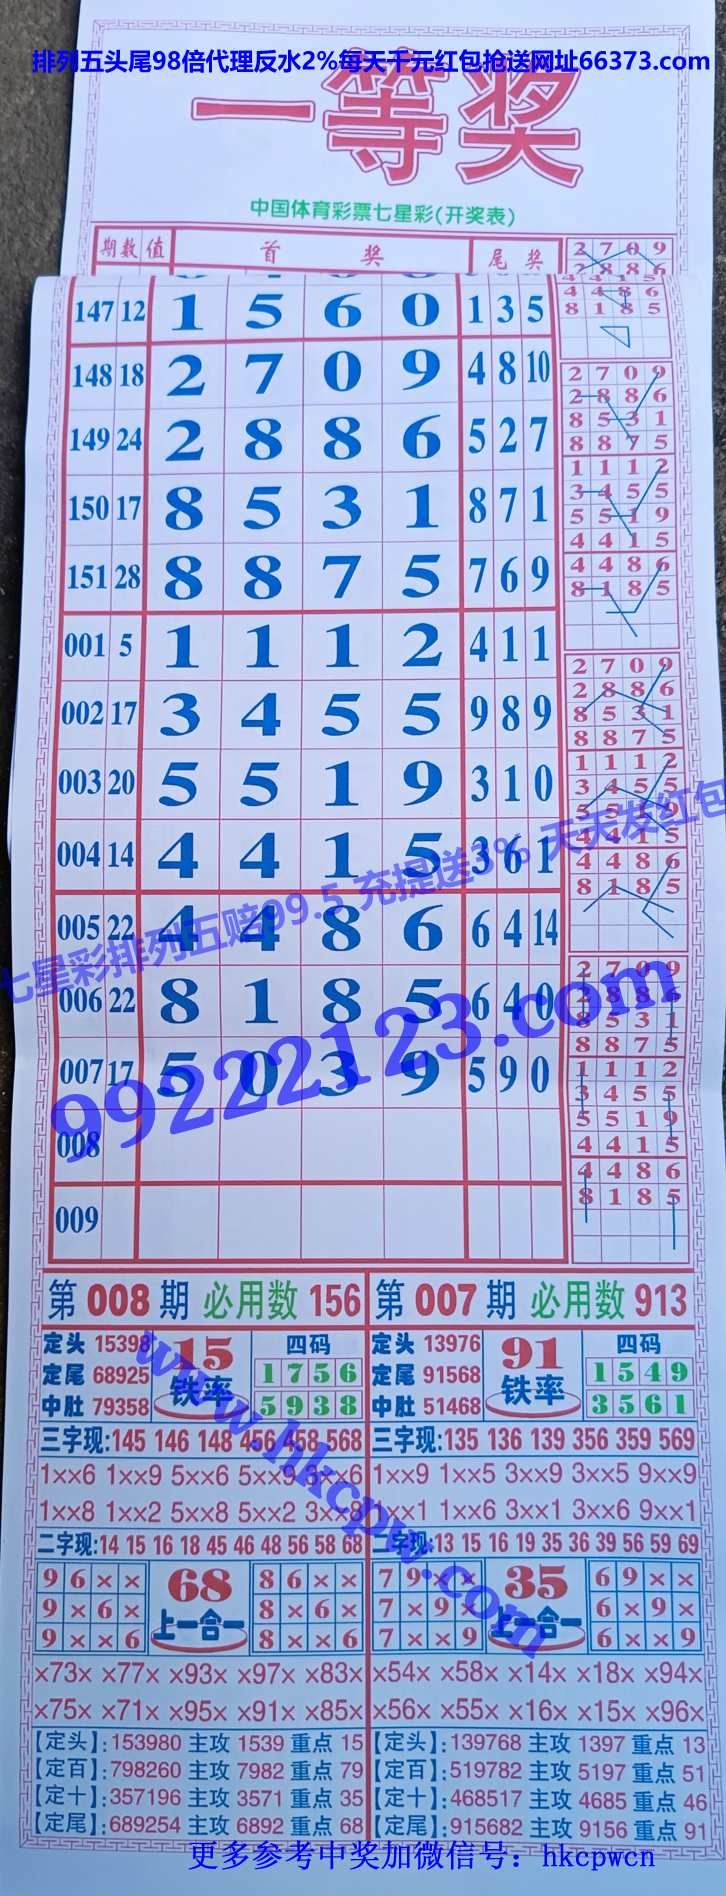 排列五头尾98倍代理反水2%每天千元红包抢送网址66373.com
一等奖
中国体育彩票七星彩(开奖表)
期数 值 首 奖 尾 奖
147 12 1 5 6 0 1 3 5
148 18 2 7 0 9 4 8 10
149 24 2 8 8 6 5 2 7
150 17 8 5 3 1 8 7 1
151 28 8 8 7 5 7 6 9
001 5 1 1 1 2 4 1 1
002 17 3 4 5 5 9 8 9
003 20 5 5 1 9 3 1 0
004 14 4 4 1 5 3 6 1
005 22 4 4 8 6 6 4 14
006 22 8 1 8 5 6 4 0
007 17 5 0 3 9 5 9 0
008
009
2 7 0 9
2 8 8 6
4 4 8 6
8 1 8 5
2 7 0 9
2 8 8 6
8 5 3 1
8 8 7 5
1 1 1 2
3 4 5 5
5 5 1 9
4 4 1 5
4 4 8 6
8 1 8 5
2 7 0 9
2 8 8 6
8 5 3 1
8 8 7 5
1 1 1 2
3 4 5 5
5 5 1 9
4 4 1 5
4 4 8 6
8 1 8 5
2 7 0 9
2 8 8 6
8 5 3 1
8 8 7 5
1 1 1 2
3 4 5 5
5 5 1 9
4 4 1 5
4 4 8 6
8 1 8 5
七星彩排列五赔99.5 充提送3% 天天发红包
99222123.com
第 008 期 必用数 156
定头 15398
定尾 68925
中肚 79358
15
铁率
四码
1 7 5 6
5 9 3 8
三字现:145 146 148 456 458 568
1××6 1××9 5××6 5××9 3××6
1××8 1××2 5××8 5××2 3××8
二字现:14 15 16 18 45 46 48 56 58 68
9 6 × ×
9 × 6 ×
9 × × 6
68
上一合一
8 6 × ×
8 × 6 ×
8 × × 6
×73× ×77× ×93× ×97× ×83×
×75× ×71× ×95× ×91× ×85×
【定头】:153980 主攻 1539 重点 15
【定百】:798260 主攻 7982 重点 79
【定十】:357196 主攻 3571 重点 35
【定尾】:689254 主攻 6892 重点 68
第 007 期 必用数 913
定头 13976
定尾 91568
中肚 51468
91
铁率
四码
1 5 4 9
3 5 6 1
三字现:135 136 139 356 359 569
1××9 1××5 3××9 3××5 9××9
1××1 1××6 3××1 3××6 9××1
二字现:13 15 16 19 35 36 39 56 59 69
7 9 × ×
7 × 9 ×
7 × × 9
35
上一合一
6 9 × ×
6 × 9 ×
6 × × 9
×54× ×58× ×14× ×18× ×94×
×56× ×55× ×16× ×15× ×96×
【定头】:139768 主攻 1397 重点 13
【定百】:519782 主攻 5197 重点 51
【定十】:468517 主攻 4685 重点 46
【定尾】:915682 主攻 9156 重点 91
www.hkcpw.com
更多参考中奖加微信号：hkcpwcn